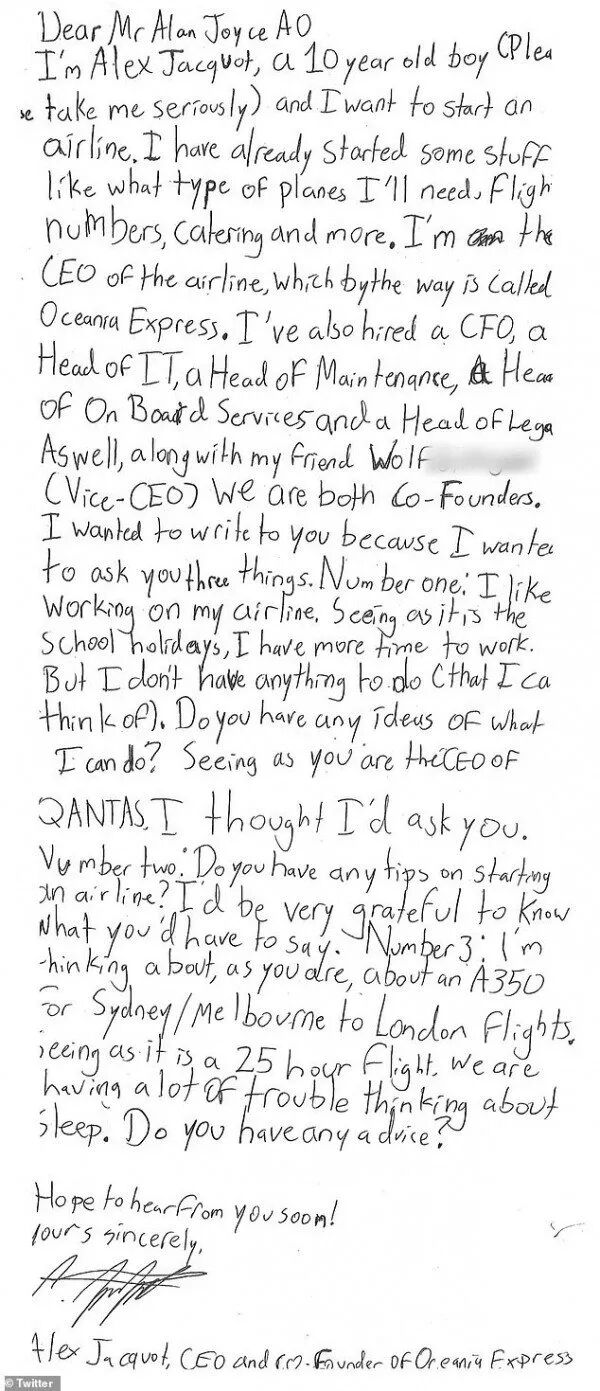 Dear Mr Alan Joyce AO
I'm Alex Jacquot, a 10 year old boy (Plea
se take me seriously) and I want to start an
airline. I have already started some stuff
like what type of planes I'll need, fligh
numbers, catering and more. I'm the
CEO of the airline, which by the way is called
Oceania Express. I've also hired a CFO, a
Head of IT, a Head of Maintenance, A Hea
of On Board Services and a Head of Lega
Aswell, along with my friend Wolf
(Vice-CEO) We are both Co-Founders.
I wanted to write to you because I wante
to ask you three things. Number one: I like
working on my airline. Seeing as it is the
school holidays, I have more time to work.
But I don't have anything to do (that I ca
think of). Do you have any ideas of what
I can do? Seeing as you are the CEO OF
QANTAS, I thought I'd ask you.
Number two: Do you have any tips on starting
an airline? I'd be very grateful to know
what you'd have to say. Number 3: I'm
thinking about, as you are, about an A350
for Sydney/Melbourne to London flights.
Seeing as it is a 25 hour flight. We are
having a lot of trouble thinking about
sleep. Do you have any advice?
Hope to hear from you soon!
Yours sincerely,
Alex Jacquot, CEO and co-Founder OF Oceania Express
© Twitter